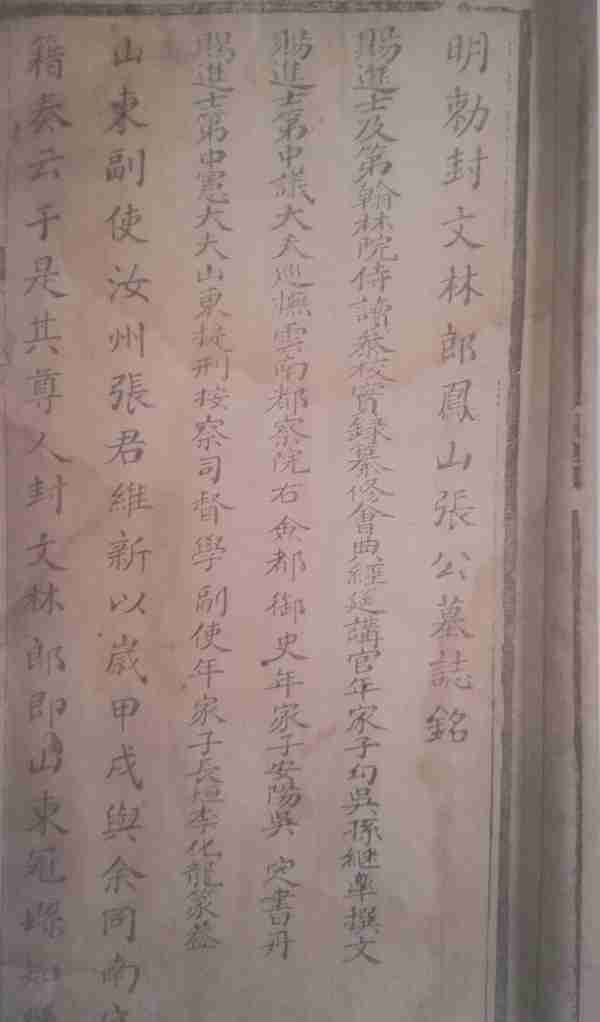 明勅封文林郎鳳山張公墓誌銘
賜進士及第翰林院侍讀叅校實録纂修會典經筵講官年家子勾吳孫繼臯撰文
賜進士第中議大夫巡撫雲南都察院右僉都御史年家子安陽吳定書丹
賜進士第中憲大夫山東提刑按察司督學副使年家子長垣李化龍篆葢
山東副使汝州張君維新以歲甲戌與余同南宮
籍奏云于是其尊人封文林郎即山東冠縣知縣